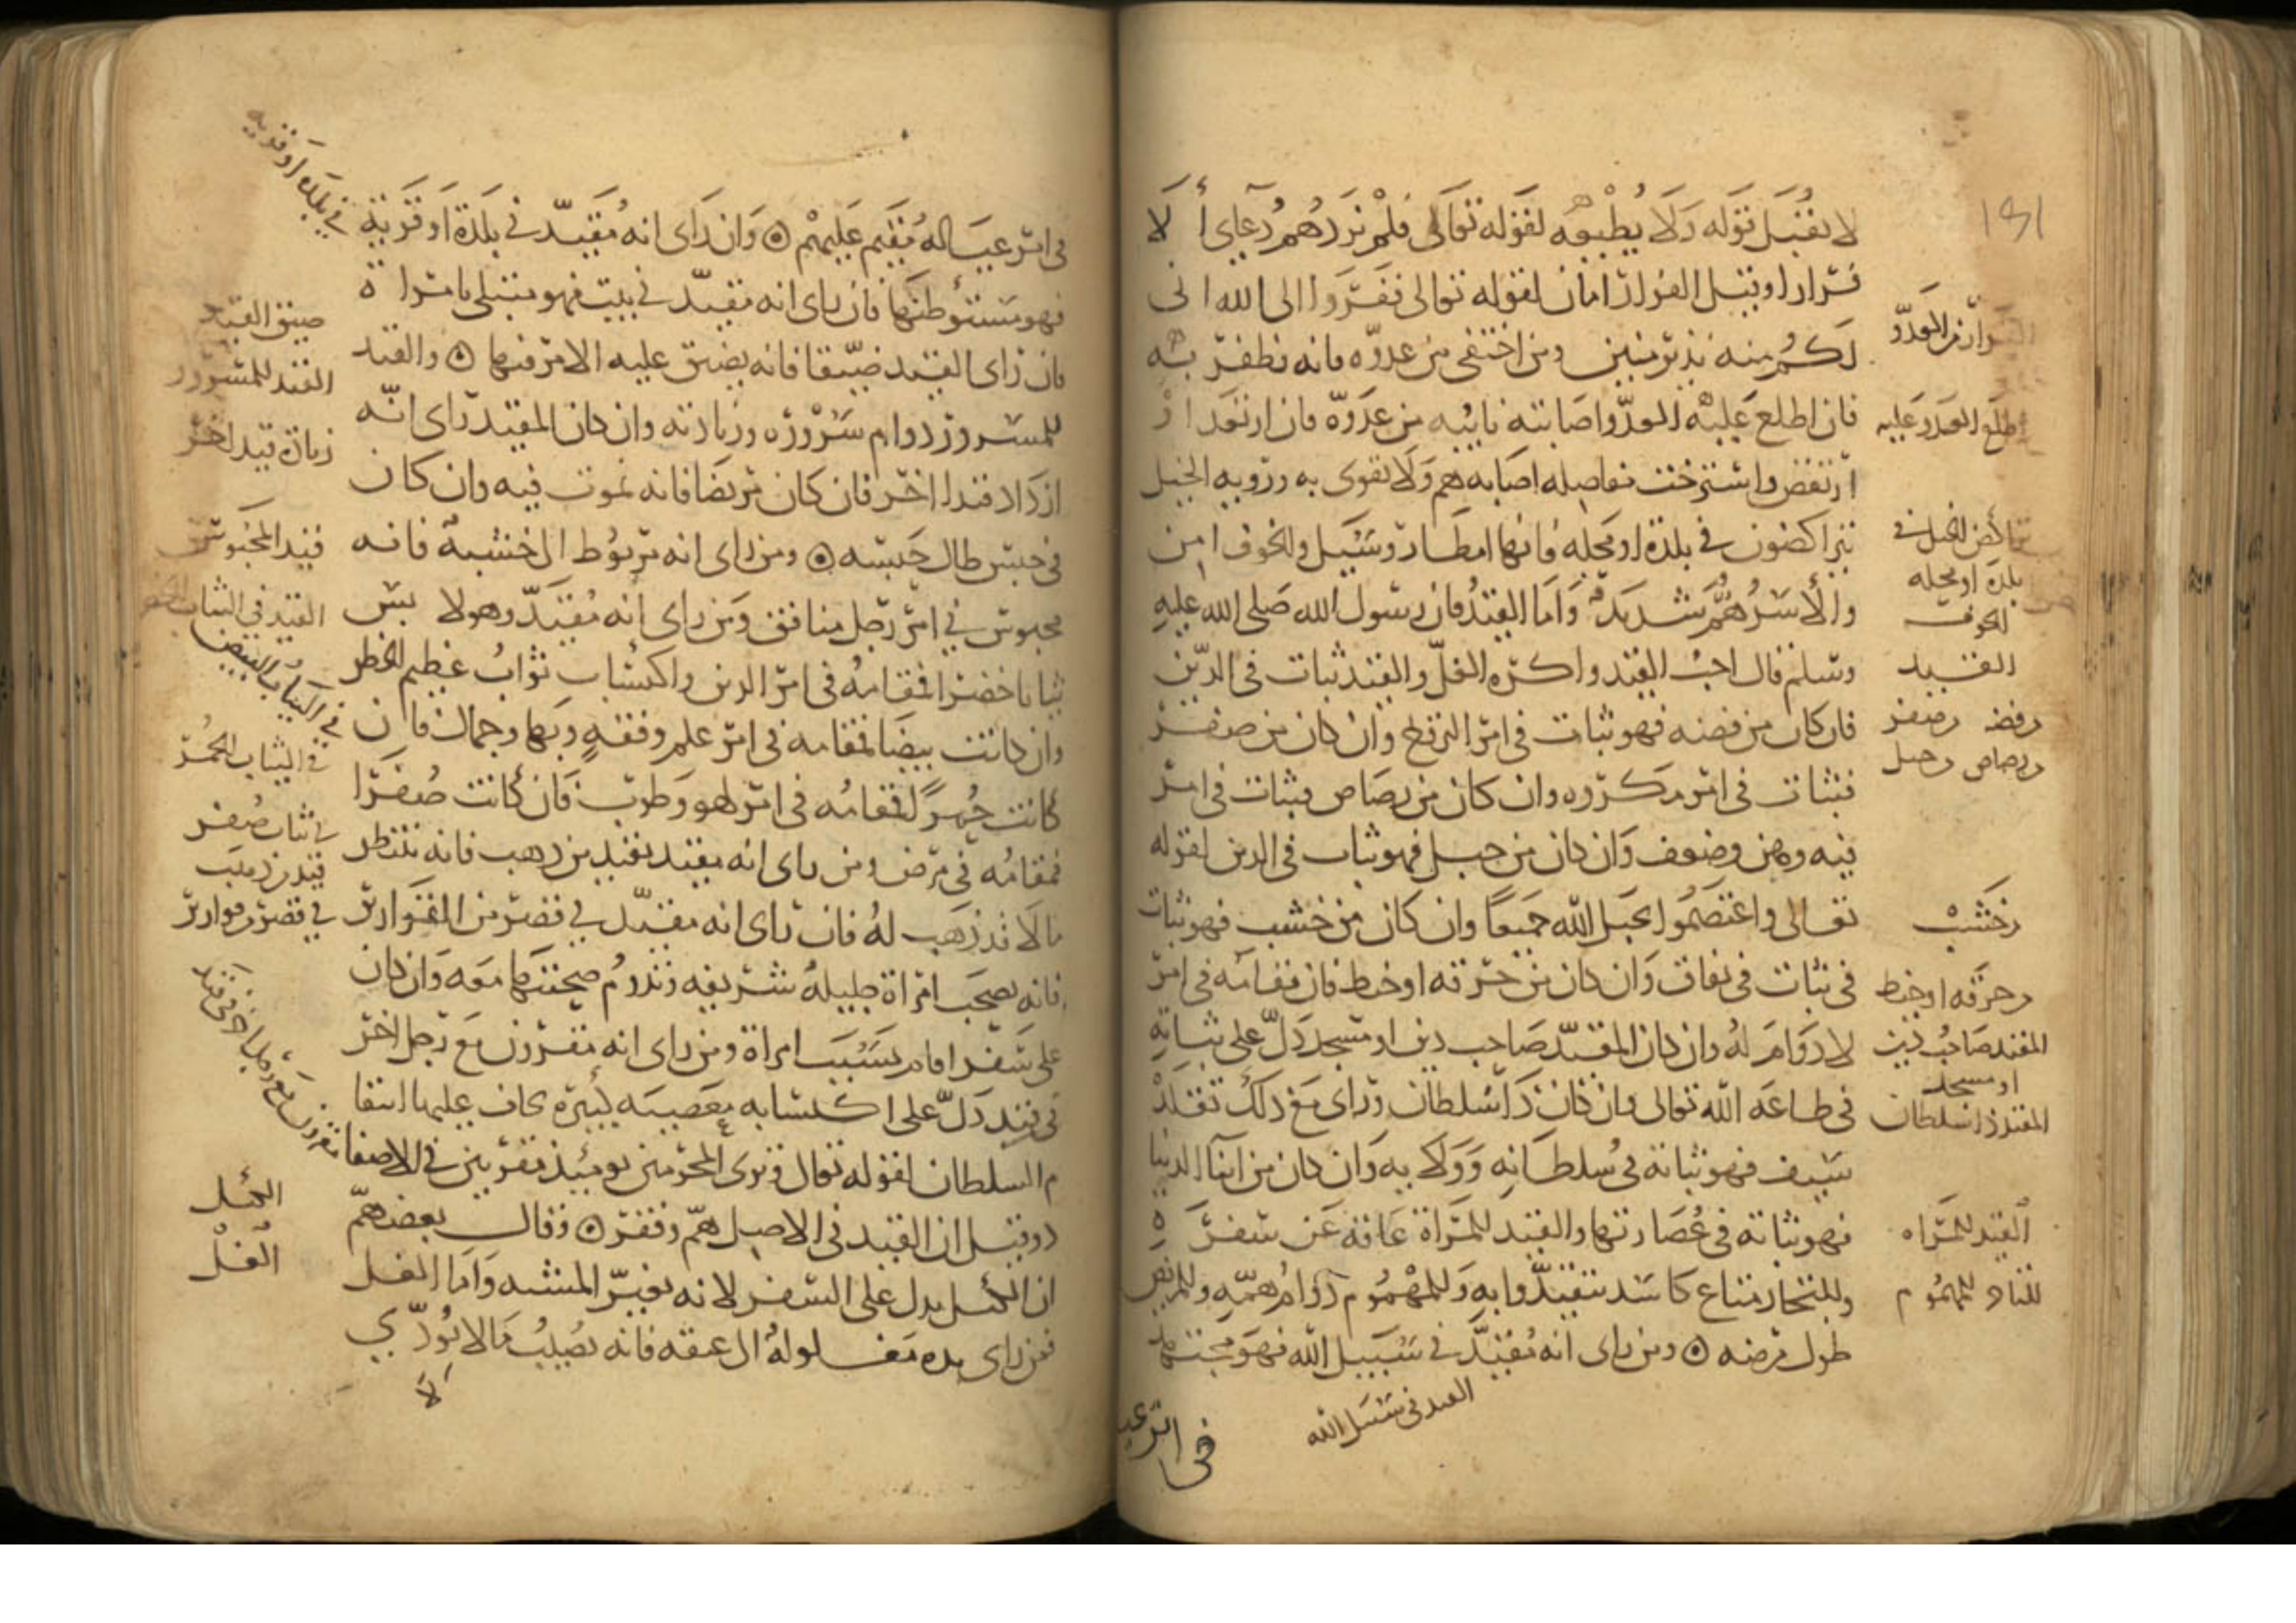 ١٤١
لا يقبل قوله ولا يطيعه لقوله تعالى فلم يزدهم دعاي الا
فرارا وقيل الفرار امان لقوله تعالى ففروا الى الله انى
لكم منه نذير مبين ومن اختفى من عدوه فانه يظفر به
فان اطلع عليه العدو اصابته نايبه من عدوه فان ارتعد او
ارتعض واسترخت مفاصله اصابه هم ولا يقوى به ورويه الخيل
يتراكضون في بلدة او محله فانها امطار وسيل والخوف امن
والاسر هم شديد واما القيد فان رسول الله صلى الله عليه
وسلم قال احب القيد واكره الغل والقيد ثبات في الدين
فان كان من فضه فهو ثبات في امر التزويج وان كان من صفر
فثبات في امر مكروه وان كان من رصاص فثبات في امر
فيه وهن وضعف وان كان من حبل فهو ثبات في الدين لقوله
تعالى واعتصموا بحبل الله جميعا وان كان من خشب فهو ثبات
في ثبات في نفاق وان كان من خرقه او خيط فان مقامه في امر
لا دوام له وان كان المقيد صاحب دين او مسجد دل على ثباته
في طاعه الله تعالى وان كان ذا سلطان وراى مع ذلك تقلد
بسيف فهو ثباته في سلطانه وولايه وان كان من ابنا الدنيا
فهو ثباته في عصارتها والقيد للمراة عاقه عن سفر
وللتجار متاع كاسد يتقيدوا به وللمهموم دوام همه وللمريض
طول مرضه ومن راى انه مقيد في سبيل الله فهو مجتهد
في امر عيا
الفرار من العدو
اطلع العدو عليه
تراكض الخيل في
بلدة او محله
الخوف
القيد
وفضه وصفر
ورصاص وحبل
وخشب
وخرقه او خيط
المقيد صاحب دين
او مسجد
المقيد ذا سلطان
القيد للمراه
للتاجر للمهموم
القيد في سبيل الله
في امر عياله مقيم عليهم وان راى انه مقيد في بلدة او قرية
فهو مستوطنها فان راى انه مقيد في بيت فهو مبتلى بامراة
فان راى القيد ضيقا فانه يضيق عليه الامر فيها والقيد
للمسرور دوام سروره وزيادته وان كان المقيد راى انه
ازداد قيدا اخر فان كان مريضا فانه يموت فيه وان كان
في حبس طال حبسه ومن راى انه مربوط الى خشبة فانه
محبوس في امر رجل منافق ومن راى انه مقيد وهو لابس
ثيابا خضرا فمقامه في امر الدين واكتساب ثواب عظيم الخطر
وان كانت بيضا فمقامه في امر علم وفقه وبها وجمال فان
كانت حمرا فمقامه في امر لهو وطرب فان كانت صفرا
فمقامه في مرض ومن راى انه مقيد بقيد من ذهب فانه ينتظر
مالا قد ذهب له فان راى انه مقيد في قصر من القوارير
فانه يصحب امراة جليله شريفه وتدوم صحبتها معه وان كان
على سفر اقام بسبب امراة ومن راى انه مقرون مع رجل اخر
في قيد دل على اكتسابه معصيه كبيرة يخاف عليها انتقا
م السلطان لقوله تعالى وترى المجرمين يومئذ مقرنين في الاصفا
د وقيل ان القيد في الاصل هم وفقر وقال بعضهم
ان الكبل يدل على السفر لانه يغير المشيه واما الغل
فمن راى يده مغلوله الى عنقه فانه يصيب مالا لا يودي
في بلدة او قرية
ضيق القيد
القيد للمسرور
زيادة قيد اخر
قيد المحبوس
القيد في الثياب الخضر
في الثياب البيض
في الثياب الحمر
في ثياب صفر
قيد من ذهب
في قصر من قوارير
مقرون مع رجل اخر في قيد
الكبل
الغل